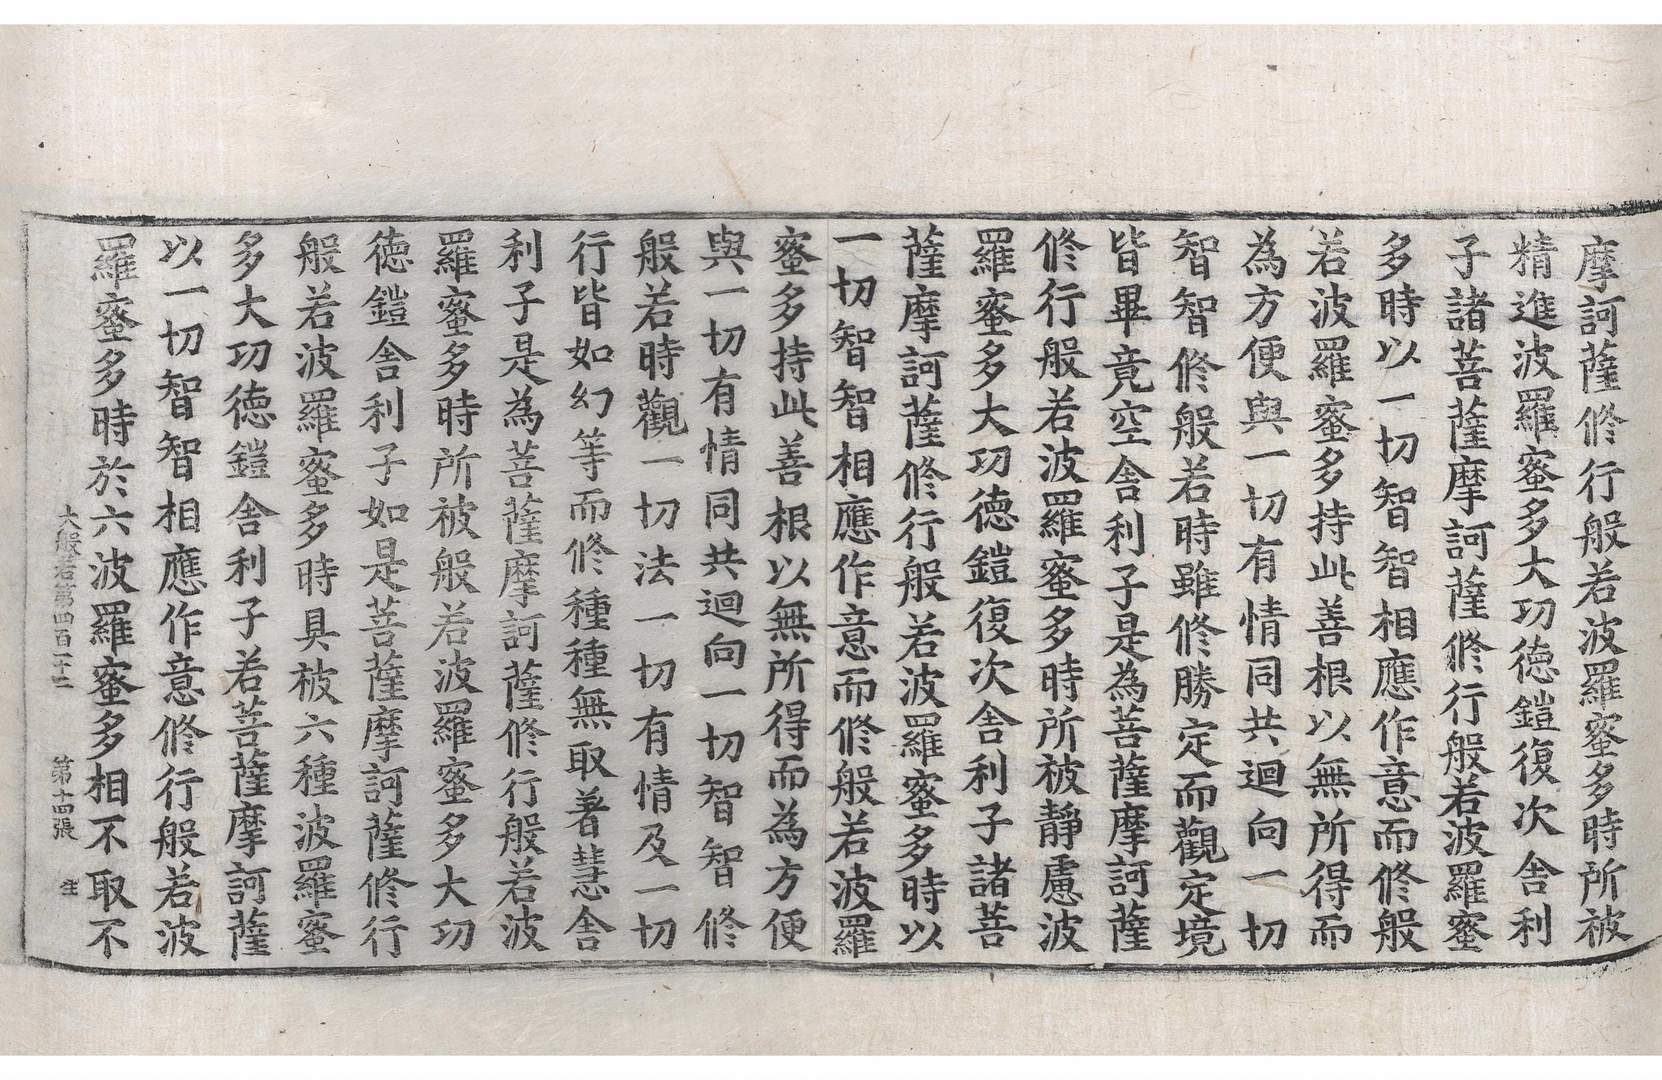 摩訶薩修行般若波羅蜜多時所被
精進波羅蜜多大功德鎧復次舍利
子諸菩薩摩訶薩修行般若波羅蜜
多時以一切智智相應作意而修般
若波羅蜜多持此善根以無所得而
為方便與一切有情同共迴向一切
智智修般若時雖修勝定而觀定境
皆畢竟空舍利子是為菩薩摩訶薩
修行般若波羅蜜多時所被靜慮波
羅蜜多大功德鎧復次舍利子諸菩
薩摩訶薩修行般若波羅蜜多時以
一切智智相應作意而修般若波羅
蜜多持此善根以無所得而為方便
與一切有情同共迴向一切智智修
般若時觀一切法一切有情及一切
行皆如幻等而修種種無取著慧舍
利子是為菩薩摩訶薩修行般若波
羅蜜多時所被般若波羅蜜多大功
德鎧舍利子如是菩薩摩訶薩修行
般若波羅蜜多時具被六種波羅蜜
多大功德鎧舍利子若菩薩摩訶薩
以一切智智相應作意修行般若波
羅蜜多時於六波羅蜜多相不取不
大般若第四百一十一 第十四張